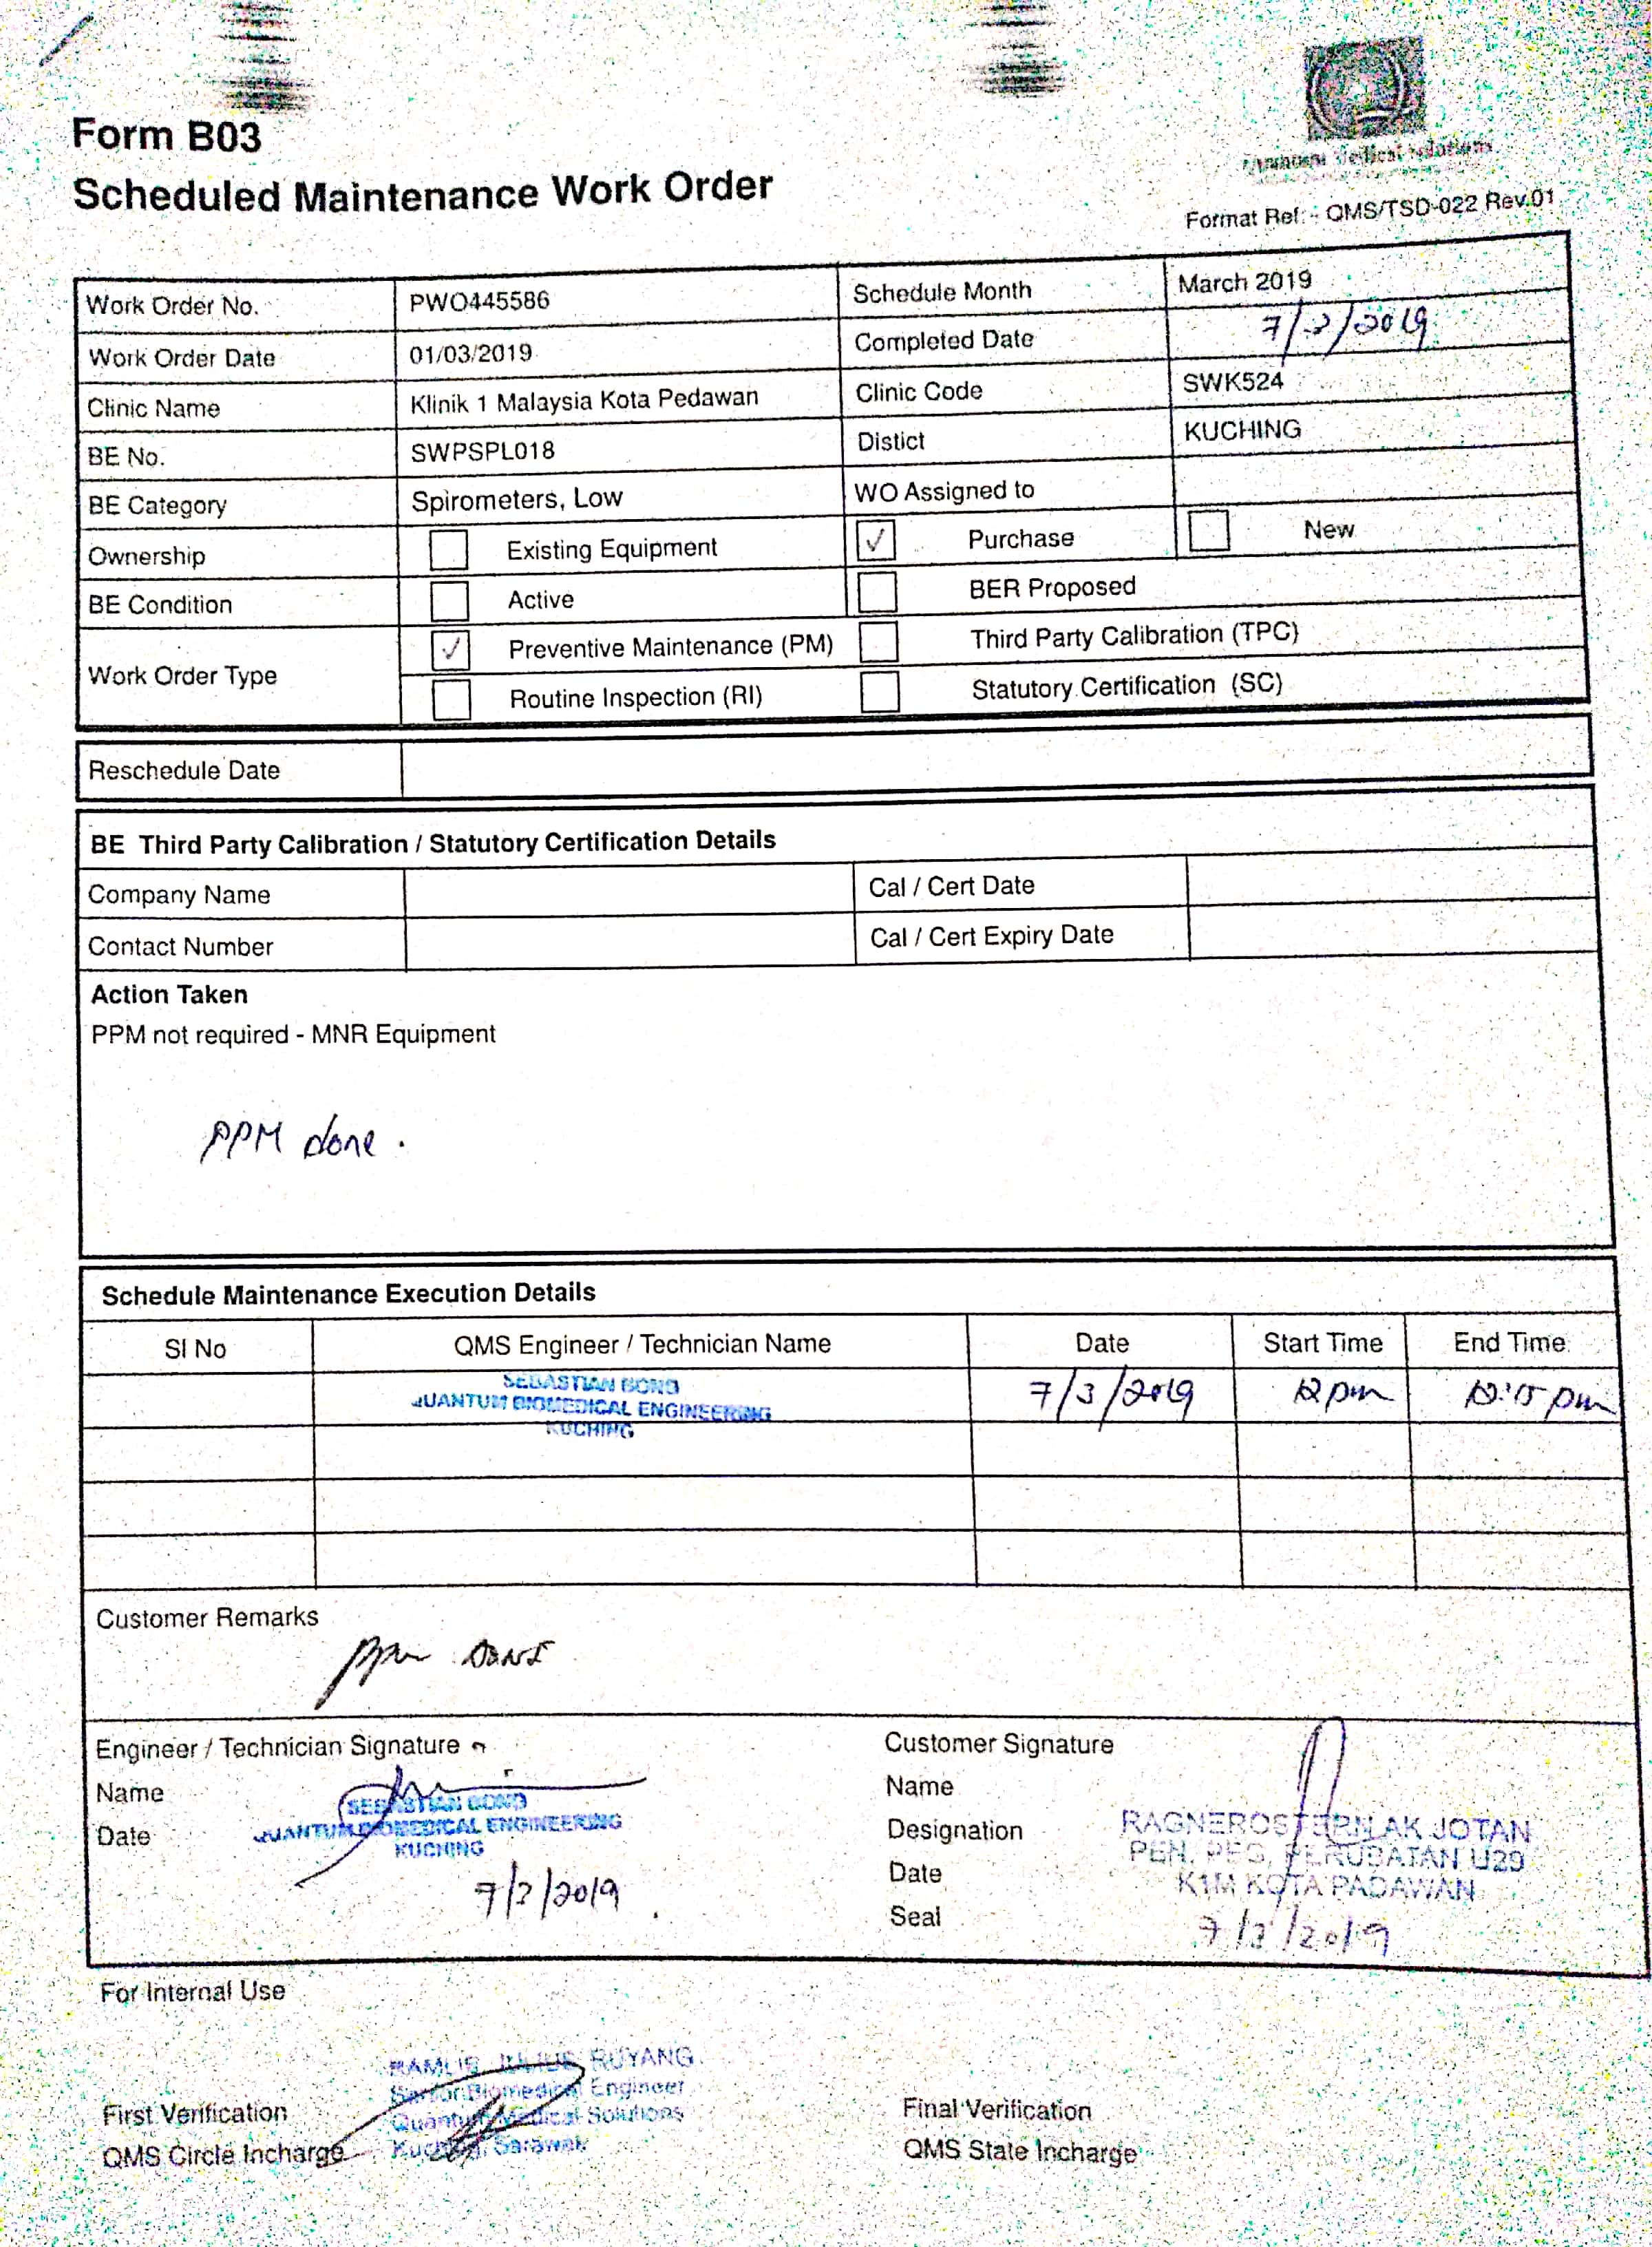 Form B03
Scheduled Maintenance Work Order
Medical Solutions
Format Ref: - QMS/TSD-022 Rev.01
Work Order No. PWO445586 Schedule Month March 2019
Work Order Date 01/03/2019 Completed Date 7/3/2019
Clinic Name Klinik 1 Malaysia Kota Pedawan Clinic Code SWK524
BE No. SWPSPL018 Distict KUCHING
BE Category Spirometers, Low WO Assigned to
Ownership Existing Equipment ✓ Purchase New
BE Condition Active BER Proposed
Work Order Type ✓ Preventive Maintenance (PM) Third Party Calibration (TPC)
Routine Inspection (RI) Statutory Certification (SC)
Reschedule Date
BE Third Party Calibration / Statutory Certification Details
Company Name Cal / Cert Date
Contact Number Cal / Cert Expiry Date
Action Taken
PPM not required - MNR Equipment
PPM done.
Schedule Maintenance Execution Details
SI No QMS Engineer / Technician Name Date Start Time End Time
SEBASTIAN BONG
QUANTUM BIOMEDICAL ENGINEERING 7/3/2019 12 pm 12:15 pm
KUCHING
Customer Remarks
ppm DONE
Engineer / Technician Signature Customer Signature
Name Name
SEBASTIAN BONG
Date QUANTUM BIOMEDICAL ENGINEERING
KUCHING
7/3/2019
Designation
Date
Seal
AK JOTAN
PEN. PEG. PERUBATAN U29
K1M KOTA PADAWAN
7/3/2019
For Internal Use
RUYANG
Senior Biomedical Engineer
First Verification Quantum Medical Solutions Final Verification
QMS Circle Incharge Kuching, Sarawak QMS State Incharge